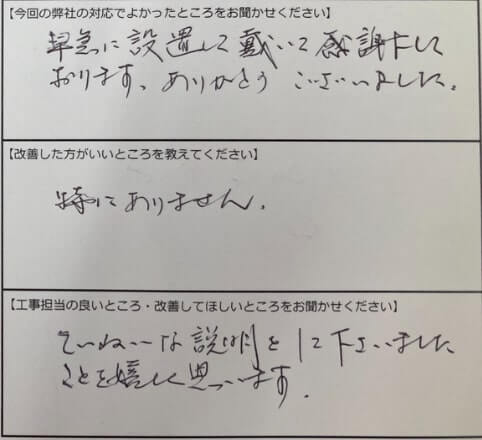 【今回の弊社の対応でよかったところをお聞かせください】
早急に設置して戴いて感謝して
おります。ありがとうございました。
【改善した方がいいところを教えてください】
特にありません。
【工事担当の良いところ・改善してほしいところをお聞かせください】
ていねいな説明をして下さいました
ことを嬉しく思っいます。